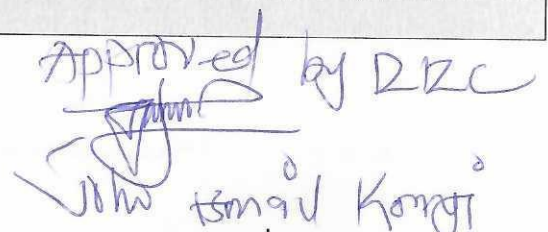 Approved by RRC
John Ismail Kongi